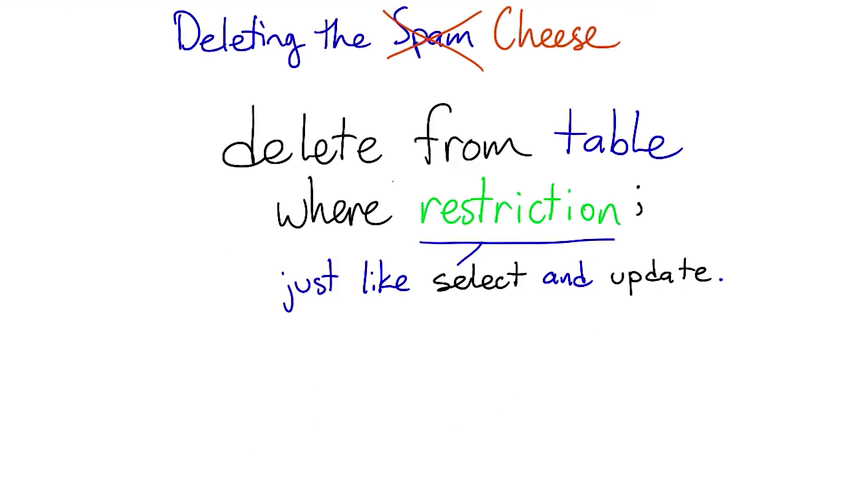 Deleting the Spam Cheese
delete from table
where restriction ;
just like select and update.